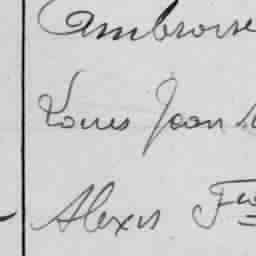 Ambroise
Louis Jean
Alexis Fçois